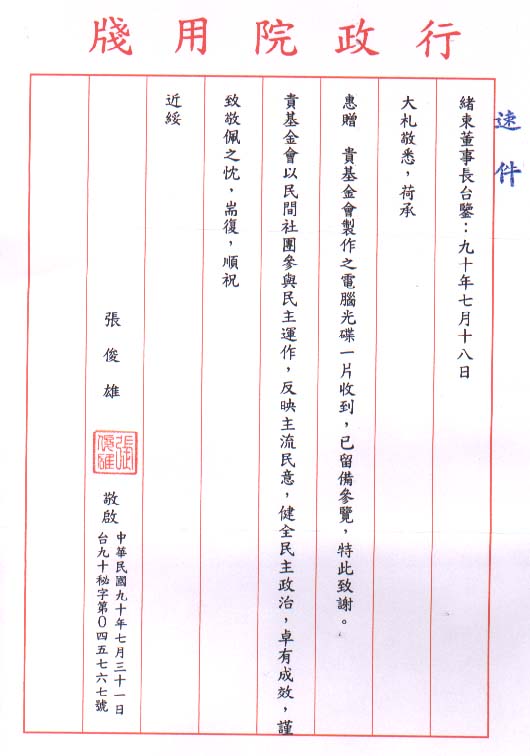 行政院用牋
速件
緒東董事長台鑒：九十年七月十八日
大札敬悉，荷承
惠贈　貴基金會製作之電腦光碟一片收到，已留備參覽，特此致謝。
貴基金會以民間社團參與民主運作，反映主流民意，健全民主政治，卓有成效，謹
致敬佩之忱，耑復，順祝
近綏
張俊雄
張俊雄
敬啟
中華民國九十年七月三十一日
台九十秘字第０四五七六七號